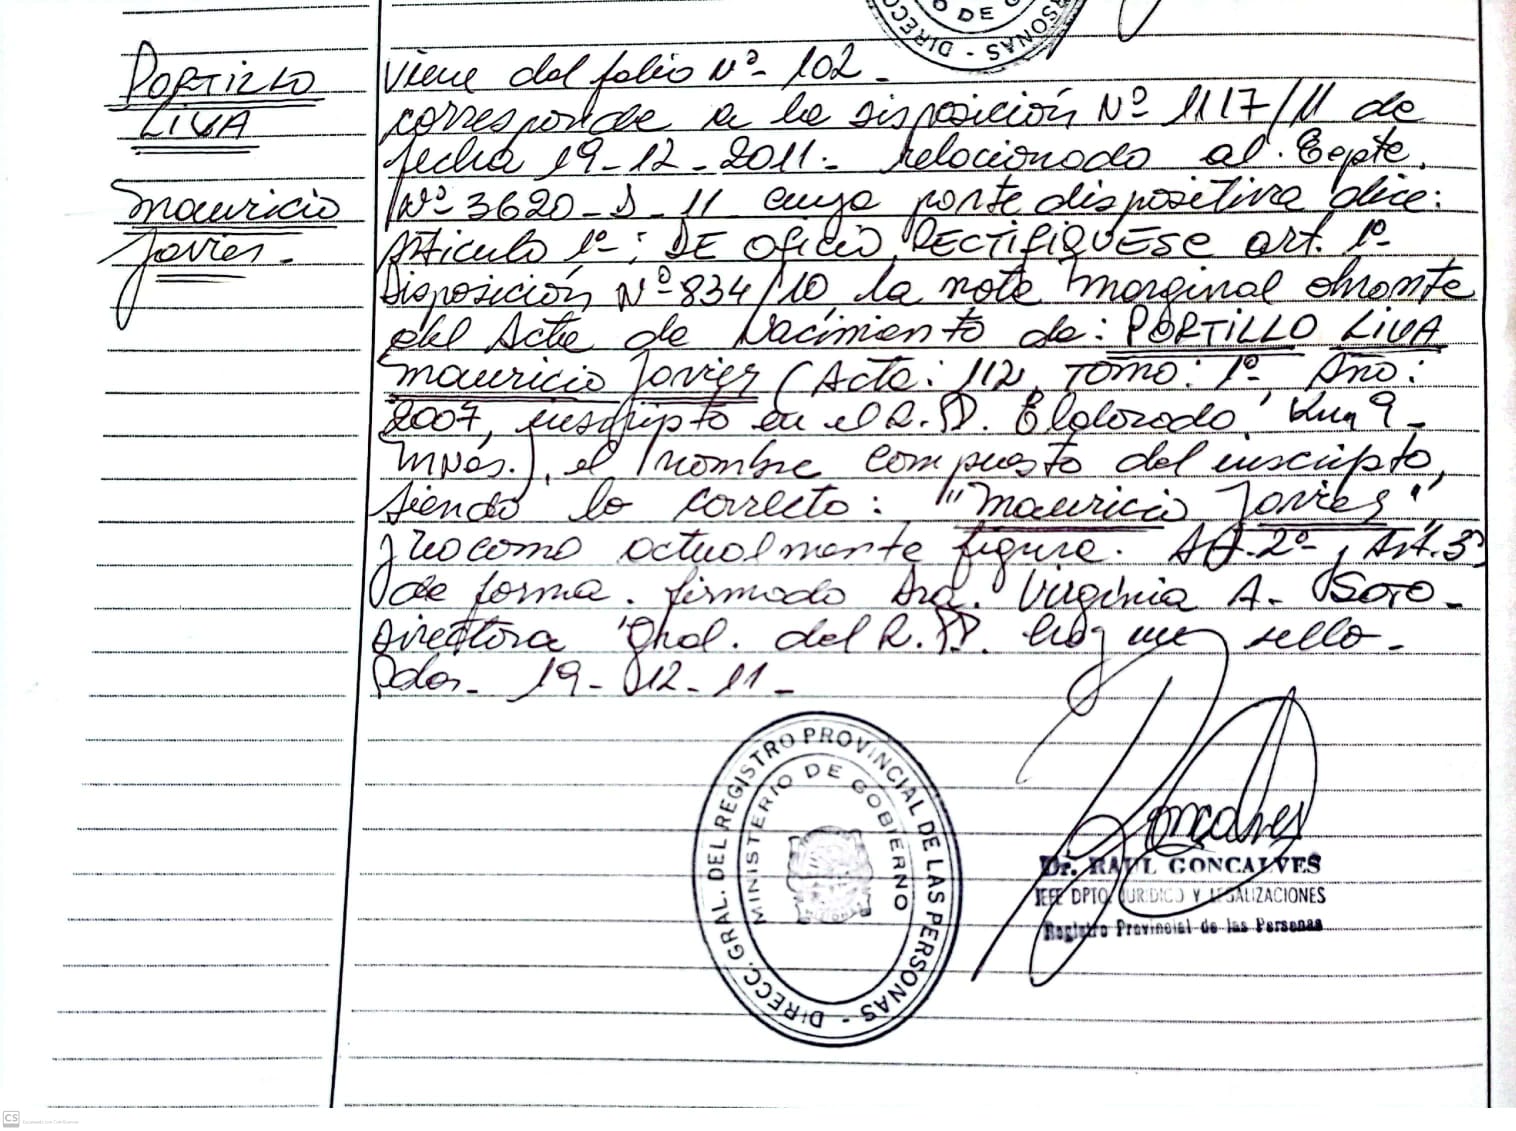 O DE G
DIRECC
SONAS -
PORTILLO
LIVA
Mauricio
Javier.-
Viene del folio Nº- 102.-
corresponde a la disposición Nº 1117/11 de
fecha 19-12-2011.- relacionado al. Eepte.
Nº 3620-S-11 cuya parte dispositiva dice:
Articulo 1º: DE Oficio, RECTIFIQUESE art. 1º-
Disposición Nº 834/10 la nota marginal obrante
del Acta de Nacimiento de: PORTILLO LIVA
Mauricio Javier (Acta: 112, TOMO: 1º, Año:
2007, inscripto en el R.PP. Eldorado, Km 9-
Mnes.), el nombre compuesto del inscripto,
siendo lo correcto: "Mauricio Javier",
y no como actualmente figura. Art.2º-, Art.3º
de forma. firmado Dra. Virginia A. SOTO-
Directora Gral. del R.PP. hay un sello.-
Pdas.- 19-12-11.-
DIRECC. GRAL. DEL REGISTRO PROVINCIAL DE LAS PERSONAS -
MINISTERIO DE GOBIERNO
Goncalves
Dr. RAUL GONCALVES
JEFE DPTO. JURIDICO Y LEGALIZACIONES
Registro Provincial de las Personas
CS